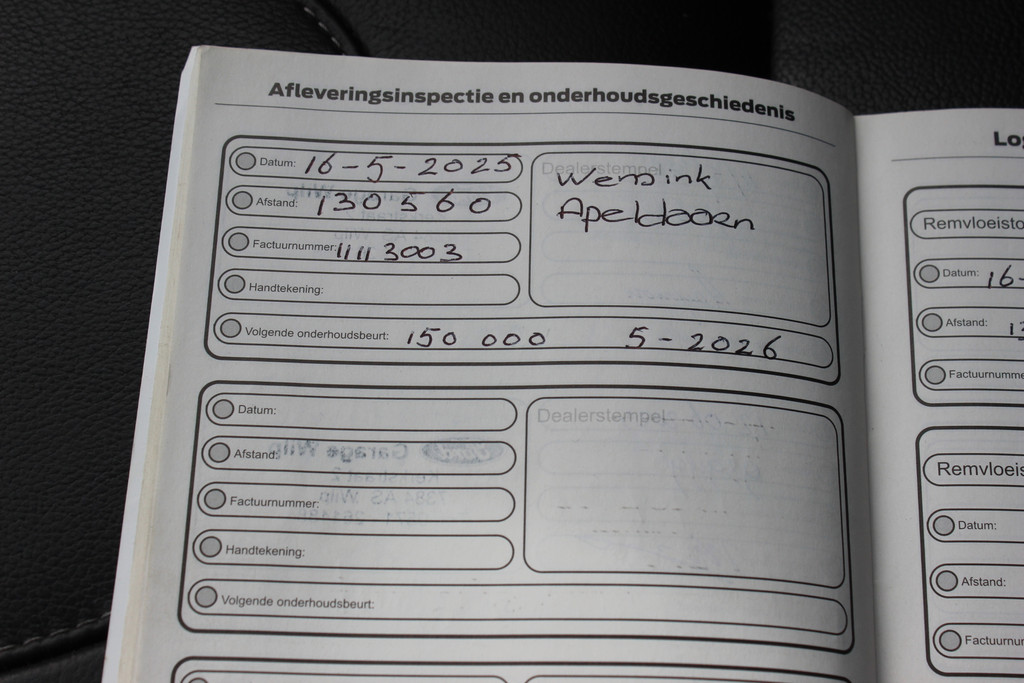 Afleveringsinspectie en onderhoudsgeschiedenis
Datum: 16-5-2025
Afstand: 130 560
Factuurnummer: 11113003
Handtekening:
Volgende onderhoudsbeurt: 150 000 5-2026
Dealerstempel
Wensink
Apeldoorn
Datum:
Afstand:
Factuurnummer:
Handtekening:
Volgende onderhoudsbeurt:
Dealerstempel
Remvloeisto
Datum: 16-
Afstand:
Factuurnumme
Remvloeis
Datum:
Afstand:
Factuurnu